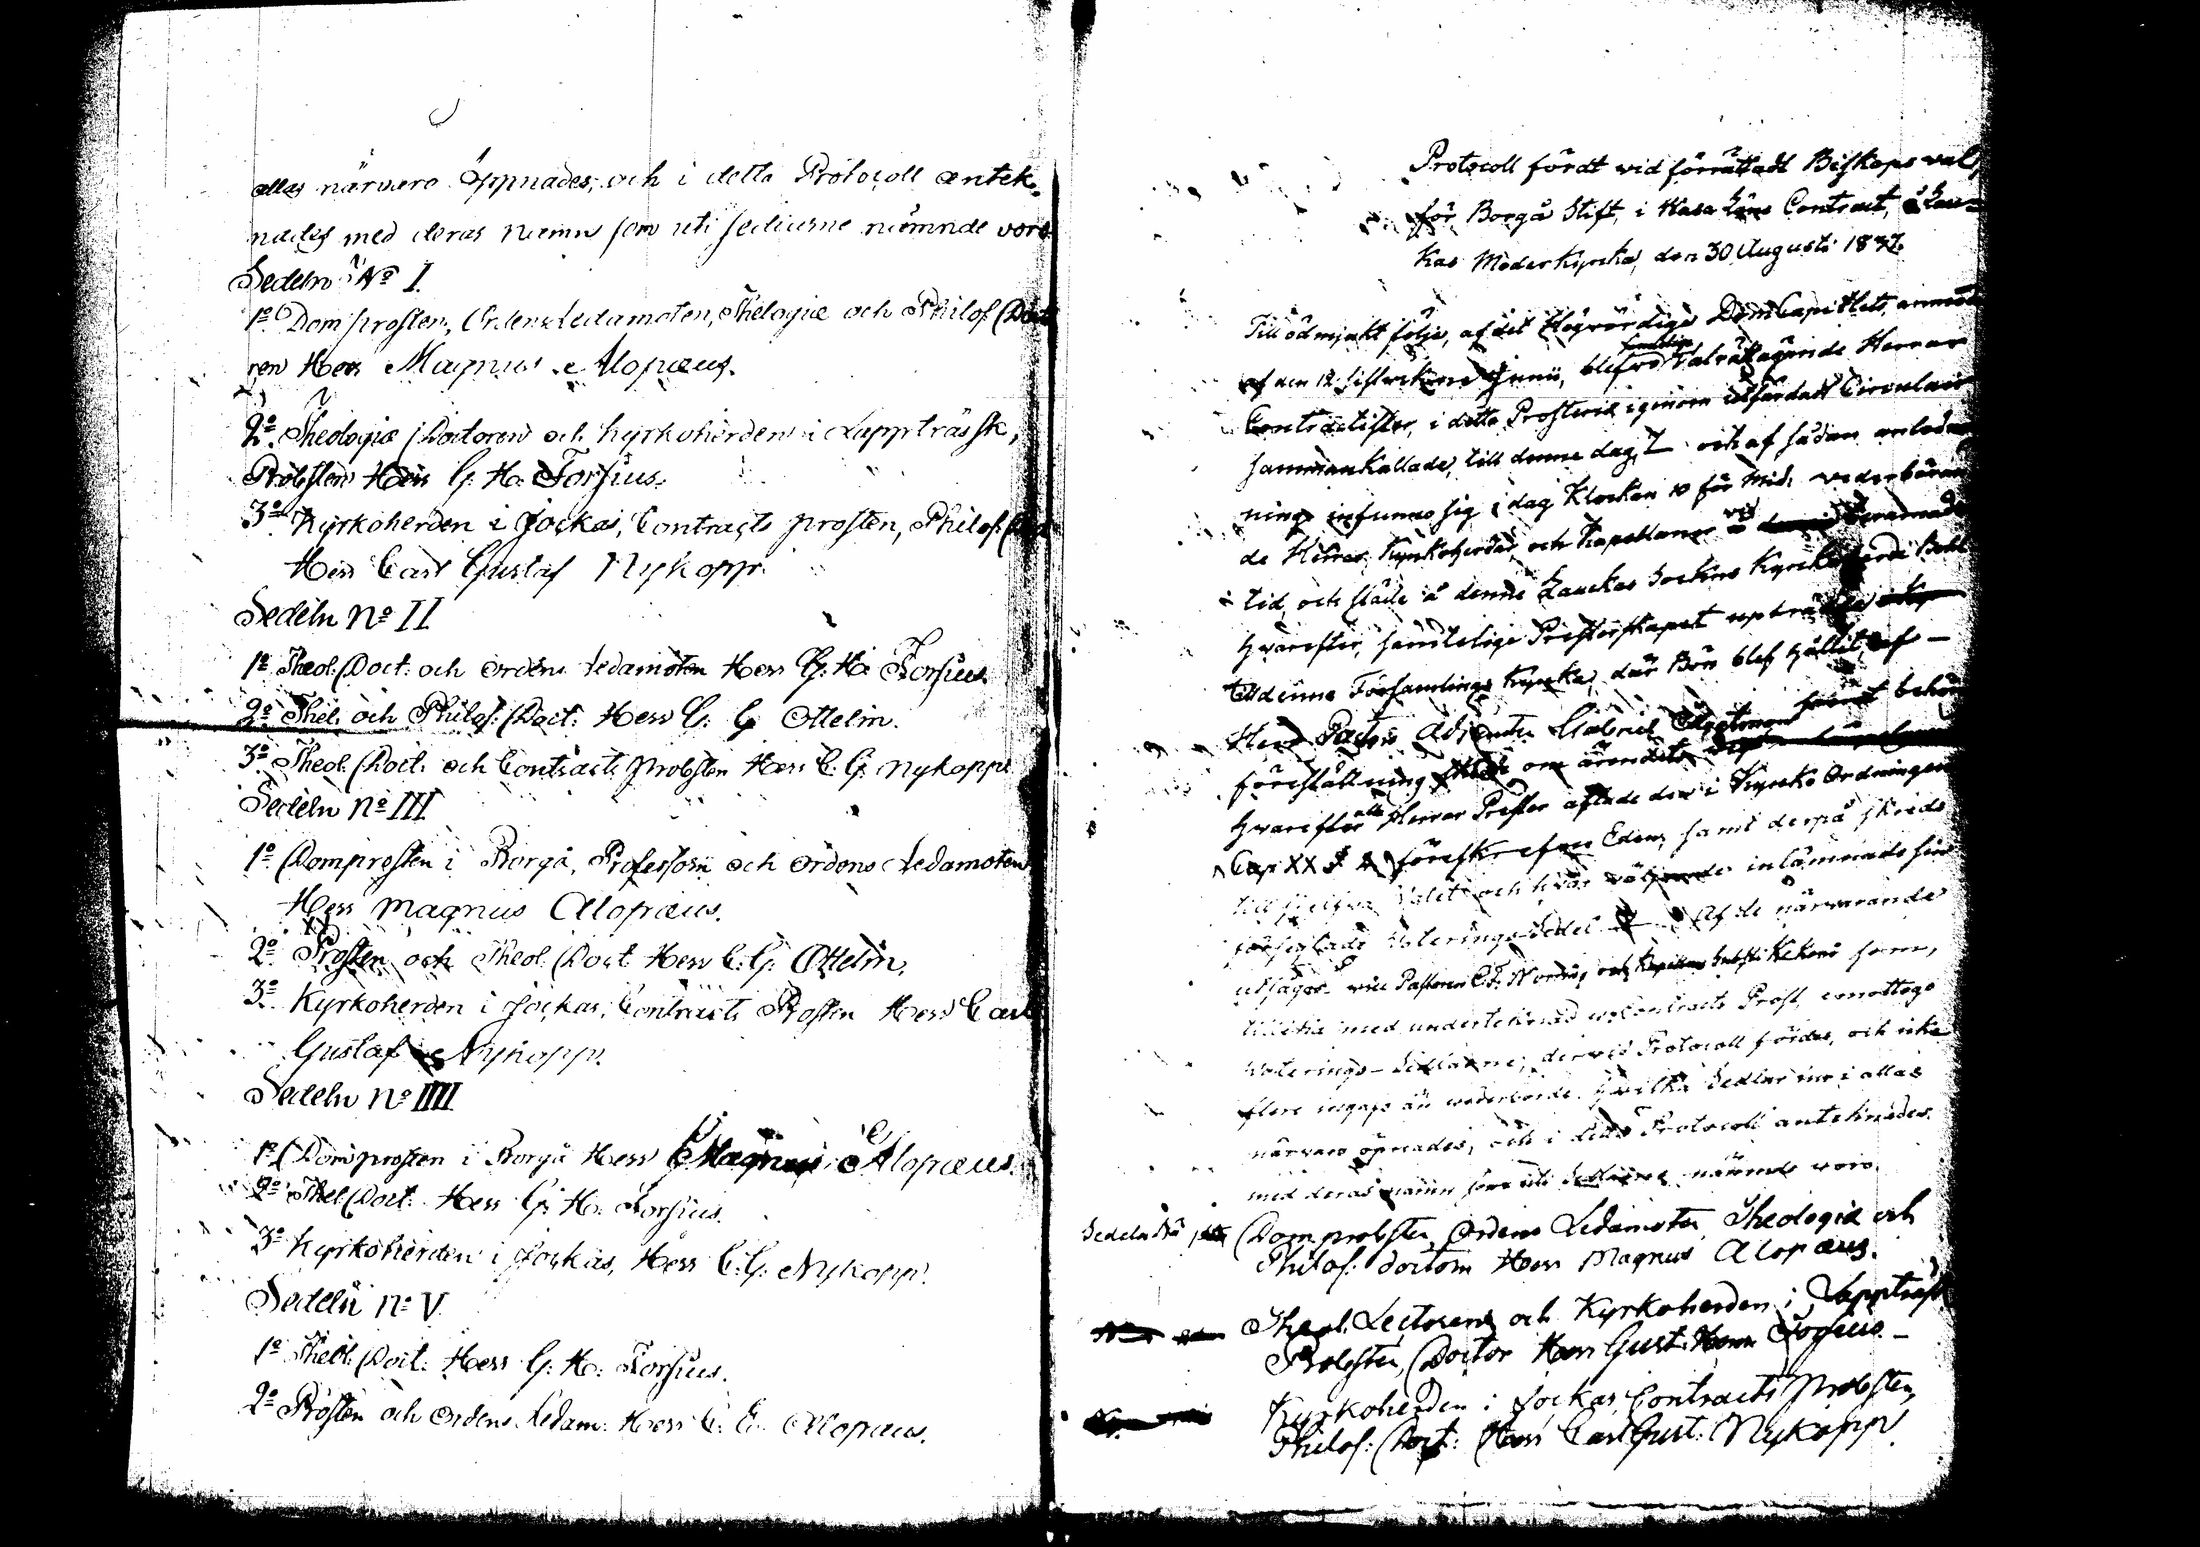 allas närvaro öppnades, och i detta Protocoll antek-
nades med deras namn som uti sedlarne nämnde voro
Sedeln No I
1o Domprosten, Ordens Ledamoten, Theologiæ och Philos. Docto
ren Herr Magnus Alopæus.
2o Theologiæ Doctoren och Kyrkoherden i Lappträsk,
Probsten Herr G. H. Forsius.
3o Kyrkoherden i Jockas, Contracts prosten, Philos.
Herr Carl Gustaf Nykopp.
Sedeln No II
1o Theol. Doct. och Ordens Ledamoten Herr G. H. Forsius.
2o Theol. och Philos. Doct. Herr C. G. Ottelin.
3o Theol. Doct. och Contracts Probsten Herr C. G. Nykopp
Sedeln No III
1o Domprosten i Borgå, Professorn och Ordens Ledamoten
Herr Magnus Alopæus.
2o Prosten och Theol. Doct. Herr C. G. Ottelin.
3o Kyrkoherden i Jockas, Contracts Prosten Herr Carl
Gustaf Nykopp.
Sedeln No IIII
1o Domprosten i Borgå Herr Magnus Alopæus.
2o Theol. Doct. Herr G. H. Forsius.
3o Kyrkoherden i Jockas, Herr C. G. Nykopp.
Sedeln No V
1o Theol. Doct. Herr G. H. Forsius.
2o Prosten och Ordens Ledam. Herr Alopæus.
Protocoll fördt vid förrättadt Biskops val,
för Borgå Stift, i Contract, å Lau-
kas Moderkyrka, den 30 Augusti 1837.
Till ödmjukt följe, af det Högvördige DomCapitlets
af den 12 sistvekne Junii, blefvo samtelige Valrättägande Herrar
Contractister, i detta Prosteri igenom utfärdadt Circulair
sammankallade, till denne dag, och af sådan anled-
ning infunno sig i dag Klockan 10 för Mid. vederböran
de Herrar Kyrkoherdar och Kapellaner vid
tid och ställe å denne Lauckas Sockens Kyrckoherde Bohl
hvarefter, samtelige Presterskapet uptrådde
till denne Församlings Kyrka, där Bön blef hållit, af
Herr Pastors Adjuncten Gabriel samt behör
föreställning om ärendets
hvarefter alla Herrar Prester aflade den i Kyrcko Ordningen
Cap XX föreskrefne Eden, samt derpå skreds
till sjelfva Valet och hvar väljande inlämnade sin
förseglade Voterings Sedel. Af de närvarande
utsågos Pastoren C. F. och Kapellan som,
tillika med undertecknad Contracts Prost, emottogo
Voterings-Sedlarne, dervid Protocoll fördes, och icke
flere ingafs än vederborde. Hvilka Sedlar nu i allas
närvaro öpnades, och i detta Protocoll anteknades
med deras namn som uti Sedlarne nämnde voro.
Sedeln Domprobsten, Ordens Ledamoten, Theologiæ och
Philos. Doctorn Herr Magnus Alopæus.
Theol. Lectoren och Kyrkoherden i Lappträsk
Probsten, Doctor Herr Gust. Forsius.
Kyrkoherden i Jockas, Contracts Probsten,
Philos. Doct. Herr Carl Gust. Nykopp.